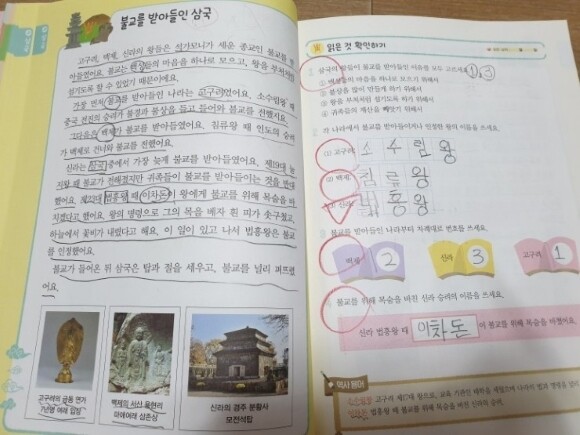 불교를 받아들인 삼국
고구려, 백제, 신라의 왕들은 석가모니가 세운 종교인 불교를 받
아들였어요. 불교는 백성들의 마음을 하나로 모으고, 왕을 부처처럼
섬기도록 할 수 있었기 때문이에요.
가장 먼저 불교를 받아들인 나라는 고구려였어요. 소수림왕 때
중국 전진의 승려가 불경과 불상을 들고 들어와 불교를 전했지요.
그다음은 백제가 불교를 받아들였어요. 침류왕 때 인도의 승려
가 백제로 건너와 불교를 전했어요.
신라는 삼국 중에서 가장 늦게 불교를 받아들였어요. 제19대 눌
지왕 때 불교가 전해졌지만 귀족들이 불교를 받아들이는 것을 반대
했어요. 제23대 법흥왕 때 이차돈이 왕에게 불교를 위해 목숨을 바
치겠다고 했어요. 왕의 명령으로 그의 목을 베자 흰 피가 솟구쳤고,
하늘에서 꽃비가 내렸다고 해요. 이 일이 있고 나서 법흥왕은 불교
를 인정했어요.
불교가 들어온 뒤 삼국은 탑과 절을 세우고, 불교를 널리 퍼뜨렸
어요.
고구려의 금동 연가
7년명 여래 입상
백제의 서산 용현리
마애여래 삼존상
신라의 경주 분황사
모전석탑
읽은 것 확인하기
1 삼국의 왕들이 불교를 받아들인 이유를 모두 고르세요. ①,③
① 백성들의 마음을 하나로 모으기 위해서
② 불상을 많이 만들게 하기 위해서
③ 왕을 부처처럼 섬기도록 하기 위해서
④ 귀족들의 재산을 빼앗기 위해서
2 각 나라에서 불교를 받아들이거나 인정한 왕의 이름을 쓰세요.
(1) 고구려: 소수림왕
(2) 백제: 침류왕
(3) 신라: 법흥왕
3 불교를 받아들인 나라부터 차례대로 번호를 쓰세요.
백제 2 신라 3 고구려 1
4 불교를 위해 목숨을 바친 신라 승려의 이름을 쓰세요.
신라 법흥왕 때 이차돈이 불교를 위해 목숨을 바쳤어요.
역사 용어
소수림왕 고구려 제17대 왕으로, 교육 기관인 태학을 세웠으며
이차돈 법흥왕 때 불교를 위해 목숨을 바친 신라의 승려.